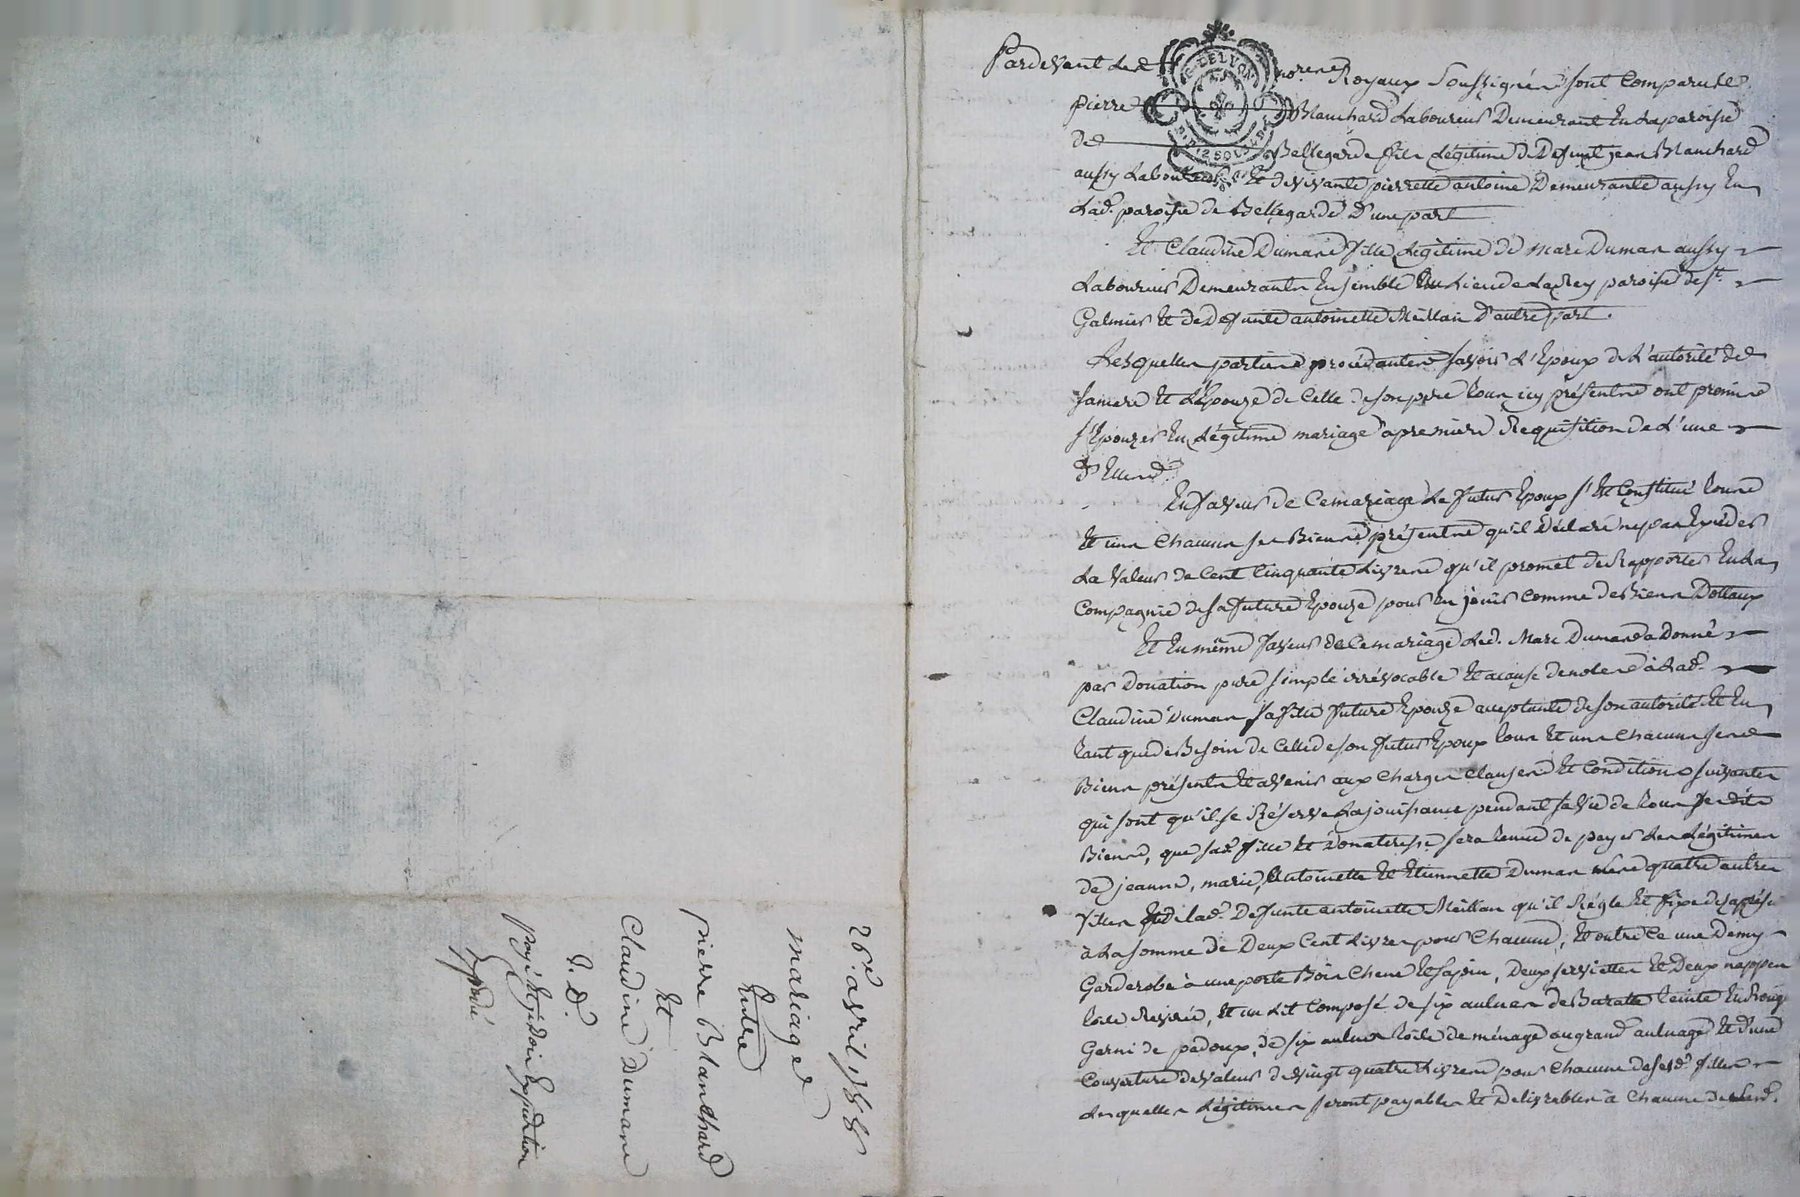 26e. avril 1788
mariage
Entre
pierre Blanchard
Et
Claudine Dumane
E. D.
payé Et je dois Expedition
Expedié
G. DE LYON
12 SOLS
Pardevant Les nores. Royaux Soussignés sont Comparus
pierre Blanchard Laboureur Demeurant En La paroisse
de Bellegarde fils Légitime de Defunt jean Blanchard
aussy Laboureur Et de vivante pierrette antoine Demeurante aussy En
Lad. paroisse de Bellegarde D'une part
Et Claudine Dumane fille Légitime de Marc Dumas aussy
Laboureur Demeurants Ensemble Lieu de paroisse de St.
Galmier Et de Defunte antoinette Meillan D'autre part.
Lesquelles parties procédantes savoir L'Epoux de L'autorité de
sa mere Et L'Epouze de Celle de son pere tous icy présents ont promis
s'Epouzer En Légitime mariage a premiere Requisition de L'une
D'Elles.
En faveur de Ce mariage Le futur Epoux s'Est Constitué tous
Et uns Chacuns ses Biens présents qu'il Déclare ne pas Exceder
La Valeur de Cent Cinquante Livres qu'il promet de Rapporter En La
Compagnie de sa future Epouze pour En jouir Comme de Biens Dottaux
Et En même faveur de Ce mariage Led. Marc Dumas a Donné
par Donation pure simple irrévocable Et a cause de noces à Lad.
Claudine Dumas sa fille future Epouze acceptante de son autorité Et En
tant que de Besoin de Celle de son futur Epoux tous Et uns Chacuns ses
Biens présents Et avenir aux Charges Clauses Et Conditions suivantes
qui sont qu'il se Réserve La jouissance pendant sa Vie de tous sesdits
Biens, que sad. fille Et Donateresse sera tenue de payer Les Légitimes
de jeanne, marie, Antoinette Et Etiennette Dumas quatre autres
filles Et de lad. Defunte antoinette Meillan qu'il Régle Et fixe
à La somme de Deux Cent Livres pour Chacune, Et outre Ce une Demy
Garderobe à une porte Bois Chene Et sapin, Deux serviettes Et Deux nappes
toile Et un Lit Composé de six aulnes de teinte En Rouge
Garni de padoux, de six aulnes toile de ménage au grand aulnage Et d'une
Couverture de Valeur de vingt quatre Livres pour Chacune de sesd. filles
Lesquelles Légitimes seront payables Et Delivrables à Chacune